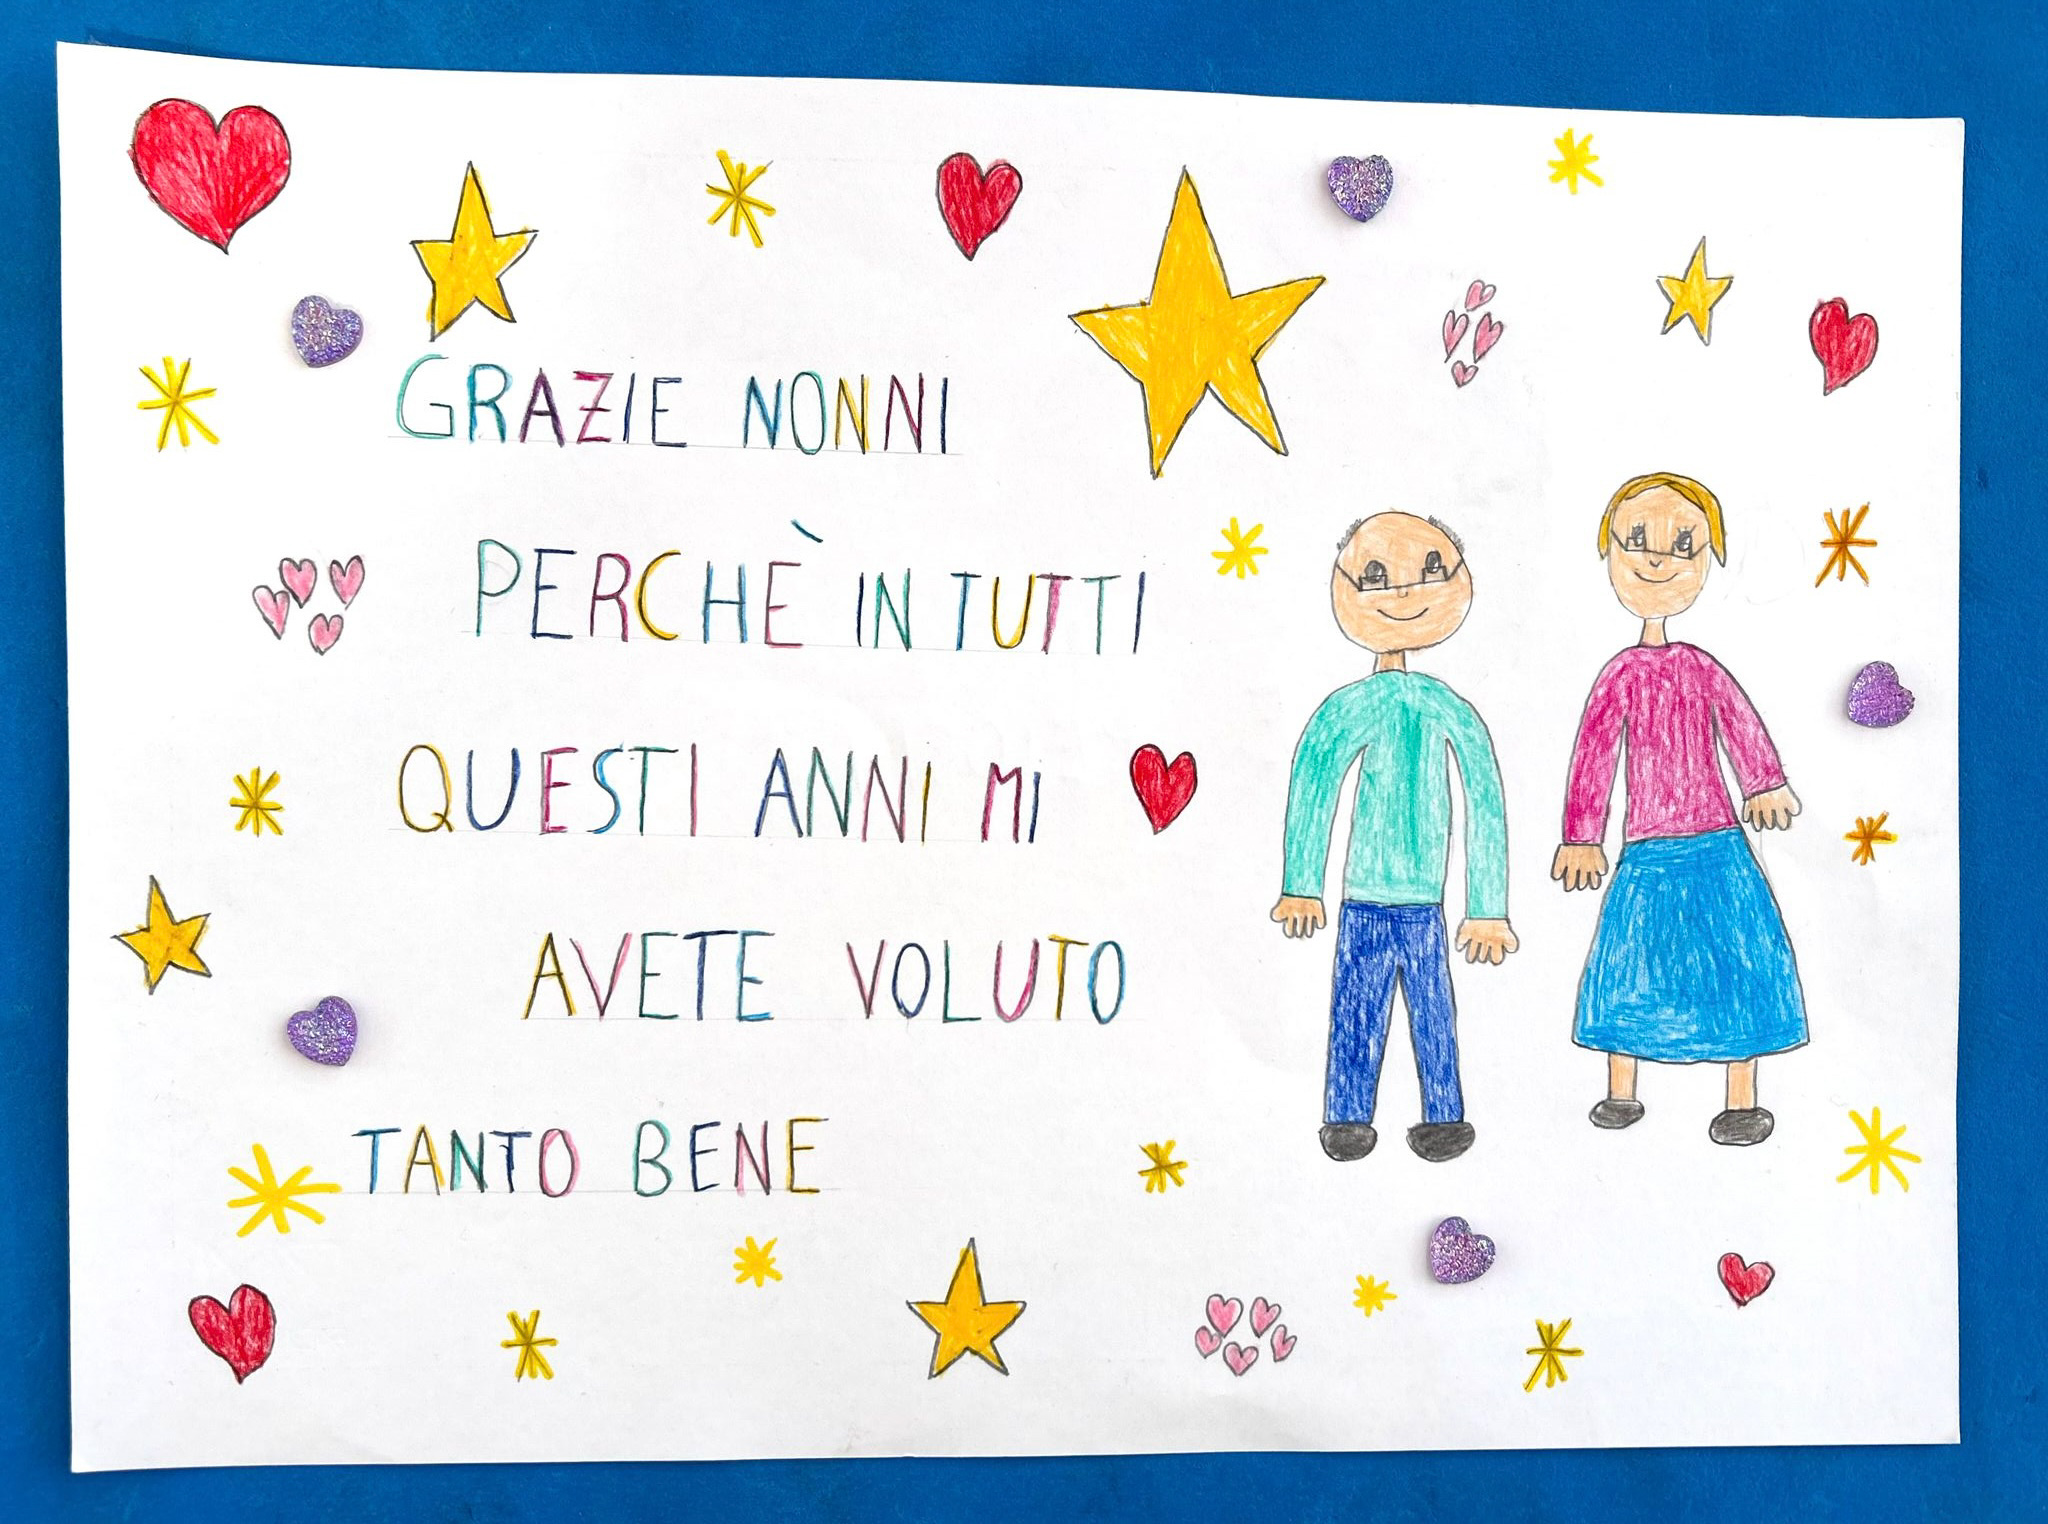 GRAZIE NONNI
PERCHÈ IN TUTTI
QUESTI ANNI MI
AVETE VOLUTO
TANTO BENE